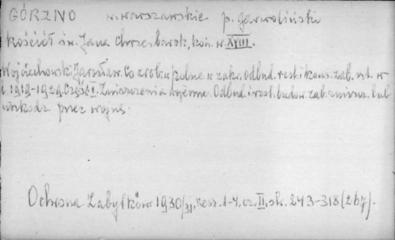 GÓRZNO w. warszawskie p. garwoliński
Kościół św. Jana Chrzc. barok, kon. w. XVIII.
Wojciechowski Jarosław. Co zrob. w Polsce w zakr. odbud. rest. i kons. zab. szt. w
l. 1919-1929. Część I. Zniszczenia wojenne. Odbud. i rest. budow. zab. zniszcz. lub
uszkodz. przez wojnę.
Ochrona Zabytków 1930/31, zesz. 1-4, cz. II, str. 243-318 (267).